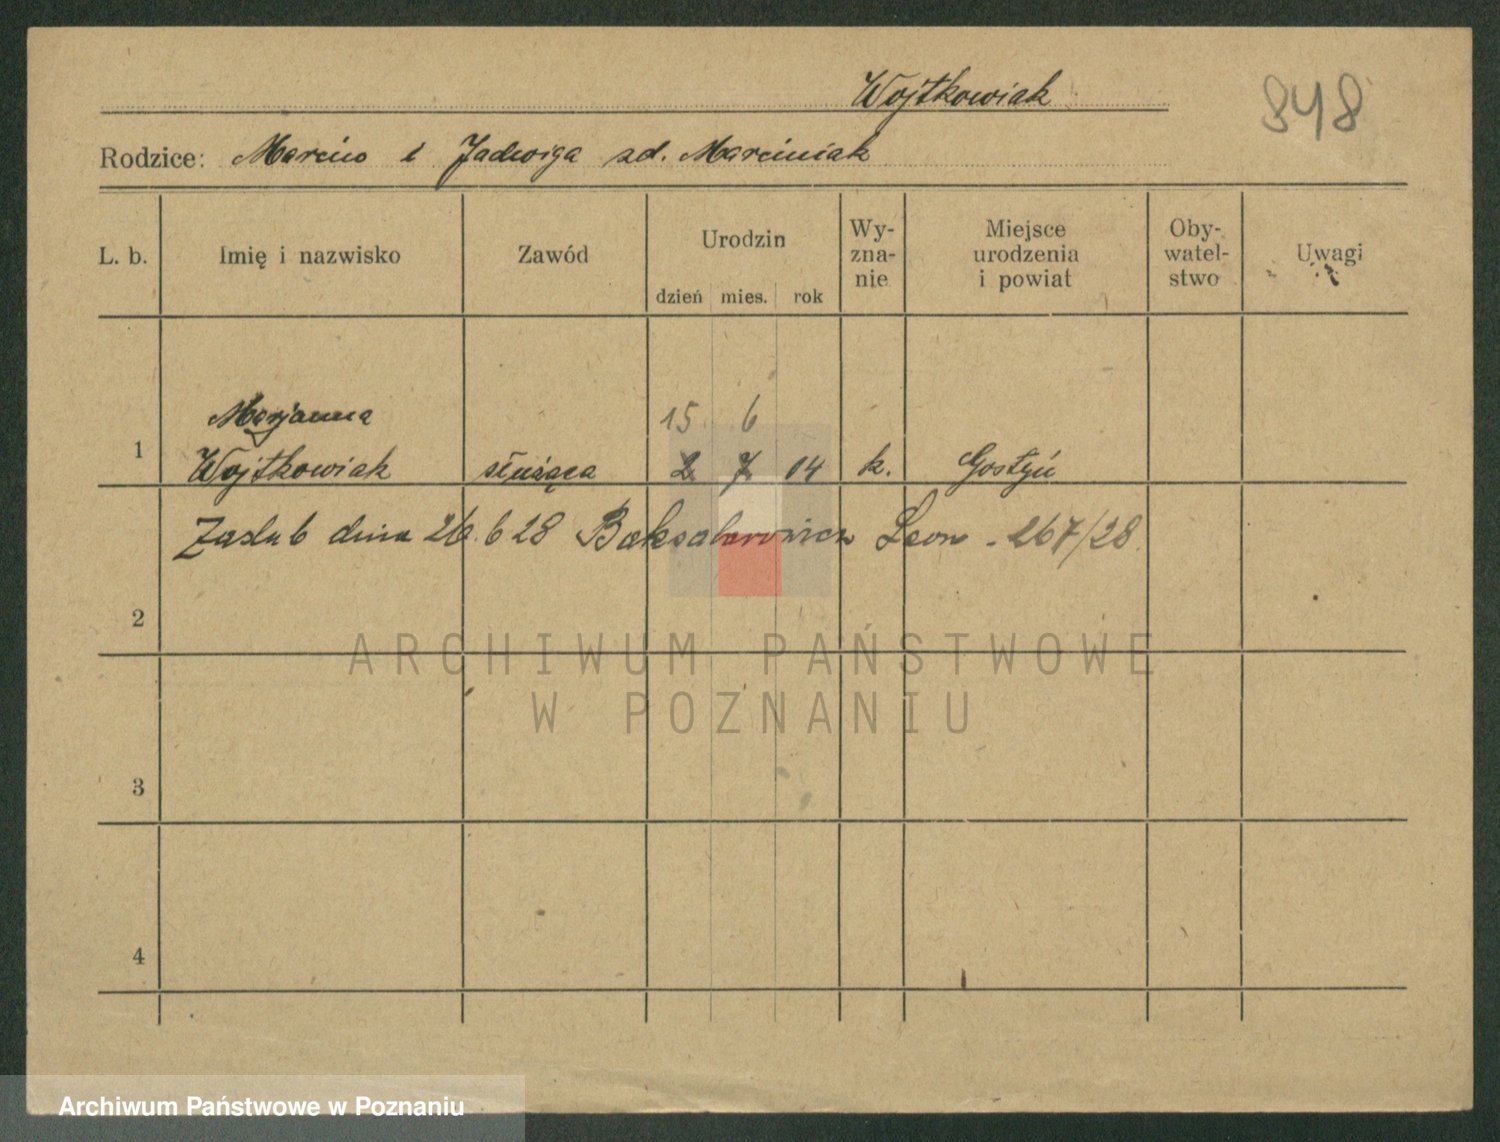 Wojtkowiak
848
Rodzice: Marcin i Jadwiga zd. Marciniak
L. b. Imię i nazwisko Zawód Urodzin dzień mies. rok Wy-zna-nie Miejsce urodzenia i powiat Oby-watel-stwo Uwagi
Marjanna 15 6
1 Wojtkowiak służąca 2 7 04 k. Gostyń
Zaślub dnia 26. 6 28 Baksalarowicz Leon - 267/28
2
ARCHIWUM PAŃSTWOWE
W POZNANIU
3
4
Archiwum Państwowe w Poznaniu